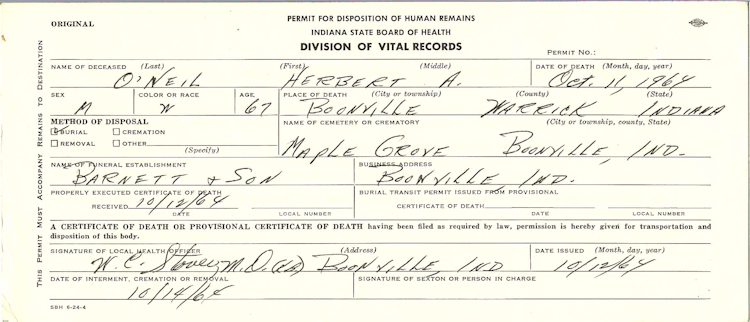 ORIGINAL
PERMIT FOR DISPOSITION OF HUMAN REMAINS
INDIANA STATE BOARD OF HEALTH
DIVISION OF VITAL RECORDS
PERMIT NO.:
THIS PERMIT MUST ACCOMPANY REMAINS TO DESTINATION
NAME OF DECEASED (Last) (First) (Middle) DATE OF DEATH (Month, day, year)
O'NEIL HERBERT A. Oct. 11, 1964
SEX COLOR OR RACE AGE PLACE OF DEATH (City or township) (County) (State)
M W 67 BOONVILLE WARRICK INDIANA
METHOD OF DISPOSAL NAME OF CEMETERY OR CREMATORY (City or township, county, State)
BURIAL CREMATION
REMOVAL OTHER
(Specify)
MAPLE GROVE BOONVILLE, IND.
NAME OF FUNERAL ESTABLISHMENT BUSINESS ADDRESS
BARNETT & SON BOONVILLE IND.
PROPERLY EXECUTED CERTIFICATE OF DEATH BURIAL TRANSIT PERMIT ISSUED FROM PROVISIONAL
RECEIVED 10/12/64 CERTIFICATE OF DEATH
DATE LOCAL NUMBER DATE LOCAL NUMBER
A CERTIFICATE OF DEATH OR PROVISIONAL CERTIFICATE OF DEATH having been filed as required by law, permission is hereby given for transportation and
disposition of this body.
SIGNATURE OF LOCAL HEALTH OFFICER (Address) DATE ISSUED (Month, day, year)
W. C. M.D. BOONVILLE, IND 10/12/64
DATE OF INTERMENT, CREMATION OR REMOVAL SIGNATURE OF SEXTON OR PERSON IN CHARGE
10/14/64
SBH 6-24-4